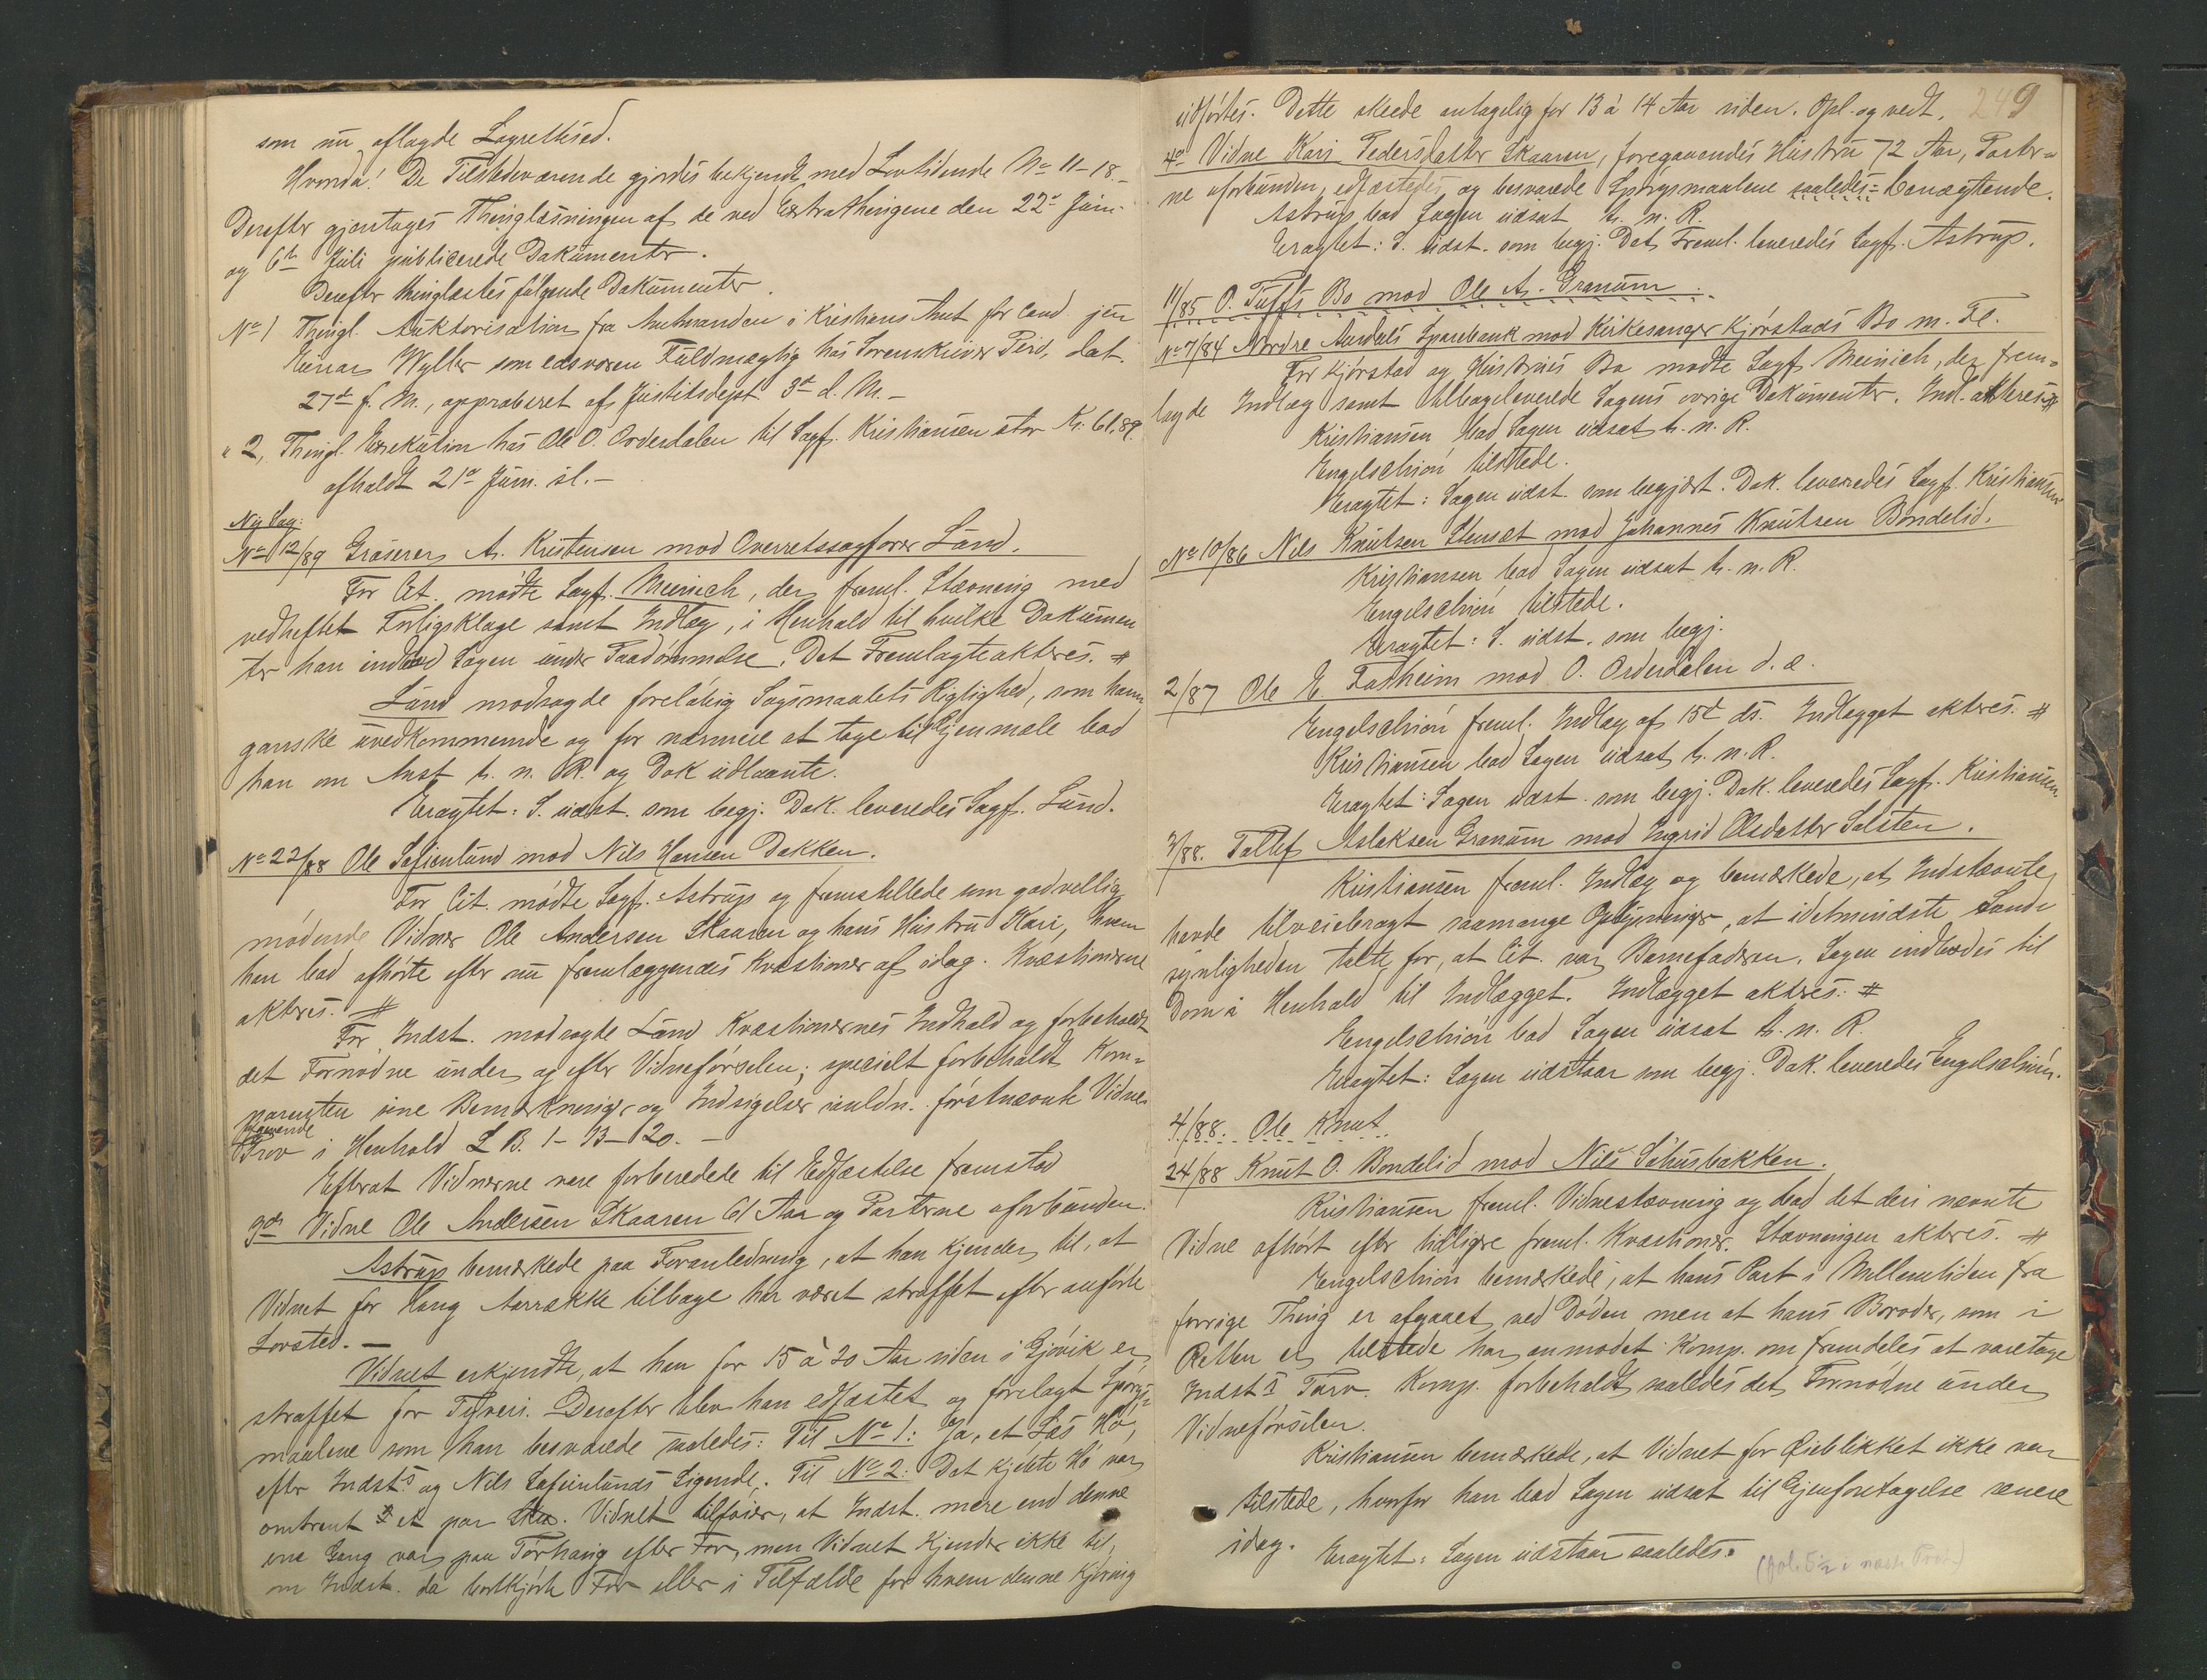 som nu aflagde Lagrettesed.
Hvorda! De Tilstedeværende gjordes bekjendt med Lovtidende No 11-18.-
Derefter gjentages Thinglæsningen af de ved Extrathingene den 22de Juni
og 6te Juli publicerede Dokumenter.
Derefter thinglæstes følgende Dokumenter.
No 1 Thingl. Auktorisation fra Amtmanden i Kristians Amt for Cand. jur
Einar Wyller som edsvoren Fuldmægtig hos Sorenskriver, dat.
27de f. M., approberet af Justitsdept 3de d. M.-
" 2, Thingl. Exekution hos Ole O. Ordersdalen til Sagf. Kristiansen stor Kr. 61,89.
afholdt 21de Juni sl.-
Ny Sag:
No 12/89 Gråserer A. Kristensen mod Overretssagfører Lund.
For Cit. mødte Sagf. Meinich, der freml. Stævning med
vedheftet Forligsklage samt Indlæg, i Henhold til hvilke Dokumen
ter han indlod Sagen under Paadømmelse. Det Fremlagte akteres. #
Lund modsagde foreløbig Søgsmaalets Rigtighed, som ham
ganske uvedkommende og for nærmere at tage til Gjenmæle bad
han om Anst. t. n. R. og Dok. udlaante.
Eragtet: S. udst. som begj. Dok. leveredes Sagf. Lund.
No 22/88 Ole Sofienlund mod Nils Hansen Dokken.
For Cit. mødte Sagf. Astrup og fremstillede som godvillig
mødende Vidner Ole Andersen Skaaren og hans Hustru Kari, hvem
han bad afhørte efter nu fremlæggendes Kvæstioner af idag. Kvæstionerne
akteres. #
For Indst. modsagde Lund Kvæstionernes Indhold og forbeholdt
det Fornødne under og efter Vidneførselen; specielt forbeholdt Kom=
parenten sine Bemærkninger og Indsigelser imldn. førstnævnte Vidnes
Prov i Henhold L B. 1-13-20.-
Efterat Vidnerne vare forberedede til Edfæstelse fremstod
3die Vidne Ole Andersen Skaaren 61 Aar og Parterne uforbunden.
Astrup bemærkede paa Foranledning, at han kjender til, at
Vidnet for lang Aarrække tilbage har været straffet efter anførte
Lovsted.-
Vidnet erkjendte, at han for 15 à 20 Aar siden i Gjøvik er
straffet for Tyveri. Derefter blev han edfæstet og forelagt Spørgs=
maalene som han besvarede saaledes: Til No 1: Ja, et Læs Hø,
efter Indsts og Nils Sofienlunds Sigende. Til No 2: Det kjøbte Hø var
omtrent et par . Vidnet tilføier, at Indst. mere end denne
ene Gang var paa Torhaug efter For, men Vidnet kjender ikke til,
om Indst. da bortkjørte For eller i Tilfælde for hvem denne Kjøring
249
udførtes. Dette skeede antagelig for 13 à 14 Aar siden. Opl. og vedt.
4de Vidne Kari Pedersdatter Skaaren, foregaaendes Hustru 72 Aar, Parter=
ne uforbunden, edfæstedes og besvarede Spørgsmaalene saaledes: benægtende.
Astrup bad Sagen udsat t. n. R.
Eragtet: S. udst. som begj. Det Freml. leveredes Sagf. Astrup.
11/85 O. Tuffs Bo mod Ole A. Granum.
No 7/84 Nordre Aurdals Sparebank mod Kirkesanger Kjørstads Bo m. Fl.
For Kjørstad og Hustrues Bo mødte Sagf. Meinich, der frem=
lagde Indlæg samt tilbageleverede Sagens øvrige Dokumenter. Indl. akteres #
Kristiansen bad Sagen udsat t. n. R.
Engelschiøn tilstede.
Eragtet: Sagen udst. som begjært. Dok. leveredes Sagf. Kristiansen
No 10/86 Nils Knutsen Stenset mod Johannes Knutsen Bondelid.
Kristiansen bad Sagen udsat t. n. R.
Engelschiøn tilstede.
Eragtet: S. udst. som begj.
2/87 Ole E Fosheim mod O. Ordersdalen d. æ.
Engelschiøn freml. Indlæg af 15de ds. Indlægget akteres. #
Kristiansen bad Sagen udsat t. n. R.
Eragtet: Sagen udst. som begj. Dok. leveredes Sagf. Kristiansen.
3/88. Tollef Aslaksen Granum mod Ingrid Olsdatter Salsten.
Kristiansen freml. Indlæg og bemærkede, at Indstævnte
havde tilveiebragt saamange Oplysninger, at idetmindste Sand=
synligheden talte for, at Cit. var Barnefaderen. Sagen indlodes til
Dom i Henhold til Indlægget. Indlægget akteres: #
Engelschiøn bad Sagen udsat t. n. R.
Eragtet: Sagen udstaar som begj. Dok. leveredes Engelschiøn.
4/88. Ole Knut
24/88 Knut O. Bondelid mod Nils Såhusbakken.
Kristiansen freml. Vidnestævning og bad det deri nævnte
Vidne afhørt efter tidligere freml. Kvæstioner. Stævningen akteres. #
Engelschiøn bemærkede, at hans Part i Mellemtiden fra
forrige Thing er afgaaet ved Døden men at hans Broder, som i
Retten er tilstede har anmodet Komp. om fremdeles at varetage
Indsts Tarv. Komp. forbeholdt saaledes det Fornødne under
Vidneførselen.
Kristiansen bemærkede, at Vidnet for Øieblikket ikke var
tilstede, hvorfor han bad Sagen udsat til Gjenforetagelse senere
idag.
Eragtet: Sagen udstaar saaledes.